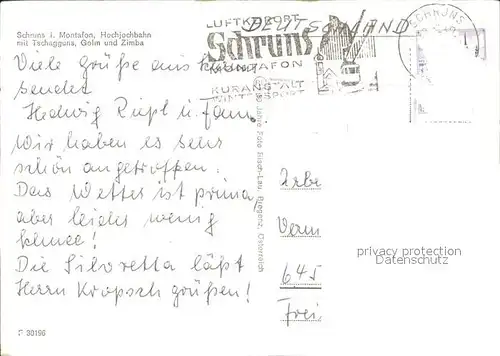 Schruns i. Montafon, Hochjochbahn
mit Tschagguns, Golm und Zimba
LUFTKURORT
DEUTSCHLAND
Schruns
MONTAFON
KURANSTALT
WINTERSPORT
SCHRUNS
Viele Grüße aus
sendet
Hedwig u. Fam.
Wir haben es sehr
schön angetroffen.
Das Wetter ist prima,
aber leider wenig
Schnee!
Die Silvretta läßt
Herrn Kropsch grüßen!
Jahre Foto Risch-Lau, Bregenz, Österreich
Verm
645
Frei
privacy protection
Datenschutz
30196